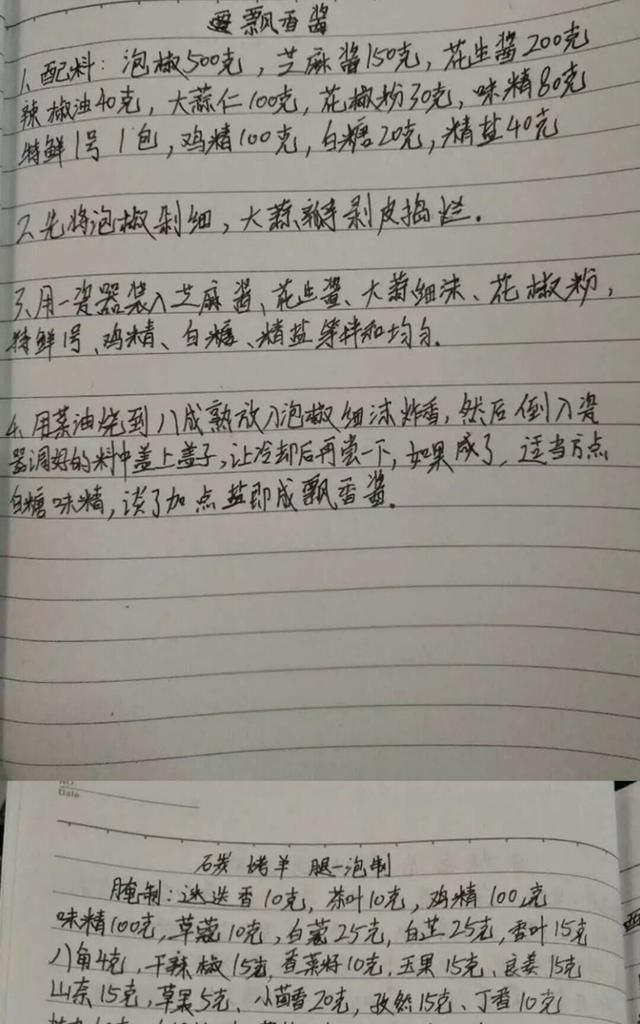 飘香酱
1、配料：泡椒500克，芝麻酱150克，花生酱200克
辣椒油40克，大蒜仁100克，花椒粉30克，味精80克
特鲜1号1包，鸡精100克，白糖20克，精盐40克
2、先将泡椒剁细，大蒜瓣剥皮捣烂。
3、用一瓷器装入芝麻酱、花生酱、大蒜细沫、花椒粉，
特鲜1号、鸡精、白糖、精盐等拌和均匀.
4、用菜油烧到八成熟放入泡椒细沫炸香，然后倒入瓷
器调好的料中盖上盖子，让冷却后再尝一下，如果咸了，适当方点
白糖味精，淡了加点盐即成飘香酱。
No.
Date
碳烤羊腿一泡制
腌制：迷迭香10克，茶叶10克，鸡精100克
味精100克，草蔻10克，白蔻25克，白芷25克，香叶15克
八角4克，干辣椒15克，香菜籽10克，玉果15克、良姜15克
山奈15克，草果5克、小茴香20克，孜然15克、丁香10克